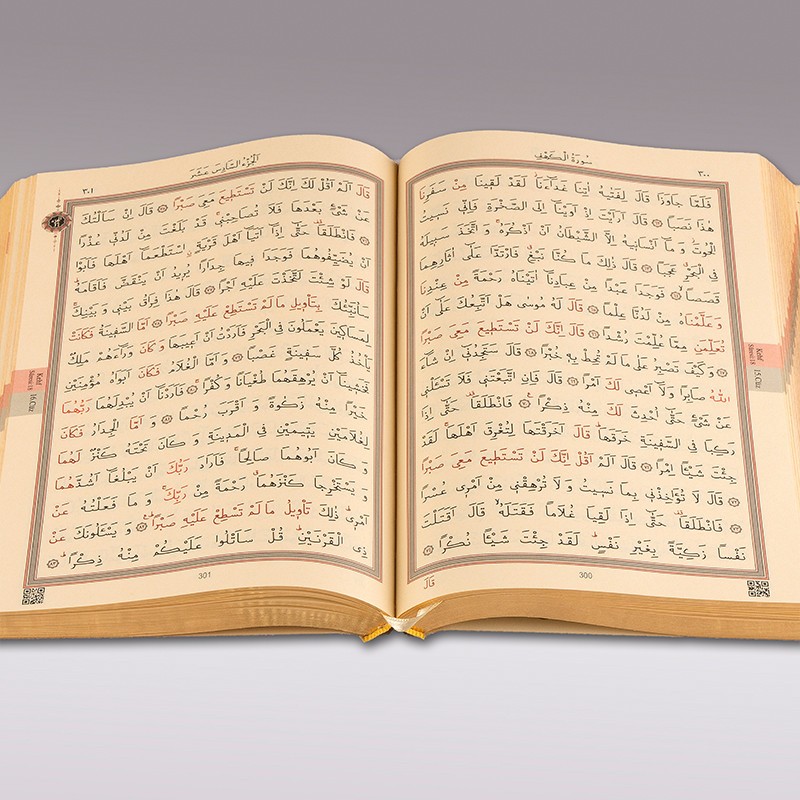 سُورَةُ الْكَهْفِ
٣٠٠
فَلَمَّا جَاوَزَا قَالَ لِفَتٰيهُ اٰتِنَا غَدَٓاءَنَاۘ لَقَدْ لَقٖينَا مِنْ سَفَرِنَا
هٰذَا نَصَبًا ۞ قَالَ اَرَاَيْتَ اِذْ اَوَيْنَٓا اِلَى الصَّخْرَةِ فَاِنّٖى نَسٖيتُ
الْحُوتَۘ وَ مَٓا اَنْسَانٖيهُ اِلَّا الشَّيْطَانُ اَنْ اَذْكُرَهُۚ وَ اتَّخَذَ سَبٖيلَهُ
فِى الْبَحْرِۗ عَجَبًا ۞ قَالَ ذٰلِكَ مَا كُنَّا نَبْغِۗ فَارْتَدَّا عَلٰٓى اٰثَارِهِمَا
قَصَصًاۙ ۞ فَوَجَدَا عَبْدًا مِنْ عِبَادِنَٓا اٰتَيْنَاهُ رَحْمَةً مِنْ عِنْدِنَا
وَ عَلَّمْنَاهُ مِنْ لَدُنَّا عِلْمًا ۞ قَالَ لَهُ مُوسٰى هَلْ اَتَّبِعُكَ عَلٰٓى اَنْ
تُعَلِّمَنِ مِمَّا عُلِّمْتَ رُشْدًا ۞ قَالَ اِنَّكَ لَنْ تَسْتَطٖيعَ مَعِىَ صَبْرًا
۞ وَ كَيْفَ تَصْبِرُ عَلٰى مَا لَمْ تُحِطْ بِهٖ خُبْرًا ۞ قَالَ سَتَجِدُنٖٓى اِنْ شَٓاءَ
اللّٰهُ صَابِرًا وَ لَٓا اَعْصٖى لَكَ اَمْرًا ۞ قَالَ فَاِنِ اتَّبَعْتَنٖى فَلَا تَسْـَٔلْنٖى
عَنْ شَیْءٍ حَتّٰٓى اُحْدِثَ لَكَ مِنْهُ ذِكْرًاۚ ۞ فَانْطَلَقَاۘ حَتّٰٓى اِذَا
رَكِبَا فِى السَّفٖينَةِ خَرَقَهَاۘ قَالَ اَخَرَقْتَهَا لِتُغْرِقَ اَهْلَهَاۚ لَقَدْ
جِئْتَ شَيْئًا اِمْرًا ۞ قَالَ اَلَمْ اَقُلْ اِنَّكَ لَنْ تَسْتَطٖيعَ مَعِىَ صَبْرًا
۞ قَالَ لَا تُؤَاخِذْنٖى بِمَا نَسٖيتُ وَ لَا تُرْهِقْنٖى مِنْ اَمْرٖى عُسْرًا
۞ فَانْطَلَقَاۘ حَتّٰٓى اِذَا لَقِيَا غُلَامًا فَقَتَلَهُۙ قَالَ اَقَتَلْتَ
نَفْسًا زَكِيَّةً بِغَيْرِ نَفْسٍۘ لَقَدْ جِئْتَ شَيْئًا نُكْرًا ۞
300
قَالَ
Kehf
Sûresi 18
15.Cüz
اَلْجُزْءُ السَّادِسَ عَشَرَ
٣٠١
قَالَ اَلَمْ اَقُلْ لَكَ اِنَّكَ لَنْ تَسْتَطٖيعَ مَعِىَ صَبْرًا ۞ قَالَ اِنْ سَاَلْتُكَ
عَنْ شَیْءٍ بَعْدَهَا فَلَا تُصَاحِبْنٖىۚ قَدْ بَلَغْتَ مِنْ لَدُنّٖى عُذْرًا
۞ فَانْطَلَقَاۘ حَتّٰٓى اِذَٓا اَتَيَٓا اَهْلَ قَرْيَةٍۨ اسْتَطْعَمَٓا اَهْلَهَا فَاَبَوْا
اَنْ يُضَيِّفُوهُمَا فَوَجَدَا فٖيهَا جِدَارًا يُرٖيدُ اَنْ يَنْقَضَّ فَاَقَامَهُۘ
قَالَ لَوْ شِئْتَ لَتَّخَذْتَ عَلَيْهِ اَجْرًا ۞ قَالَ هٰذَا فِرَاقُ بَيْنٖى وَ بَيْنِكَۚ
سَاُنَبِّئُكَ بِتَاْوٖيلِ مَا لَمْ تَسْتَطِعْ عَلَيْهِ صَبْرًا ۞ اَمَّا السَّفٖينَةُ فَكَانَتْ
لِمَسَاكٖينَ يَعْمَلُونَ فِى الْبَحْرِ فَاَرَدْتُ اَنْ اَعٖيبَهَا وَ كَانَ وَرَٓاءَهُمْ مَلِكٌ
يَاْخُذُ كُلَّ سَفٖينَةٍ غَصْبًا ۞ وَ اَمَّا الْغُلَامُ فَكَانَ اَبَوَاهُ مُؤْمِنَيْنِ
فَخَشٖينَٓا اَنْ يُرْهِقَهُمَا طُغْيَانًا وَ كُفْرًاۚ ۞ فَاَرَدْنَٓا اَنْ يُبْدِلَهُمَا رَبُّهُمَا
خَيْرًا مِنْهُ زَكٰوةً وَ اَقْرَبَ رُحْمًا ۞ وَ اَمَّا الْجِدَارُ فَكَانَ
لِغُلَامَيْنِ يَتٖيمَيْنِ فِى الْمَدٖينَةِ وَ كَانَ تَحْتَهُ كَنْزٌ لَهُمَا
وَ كَانَ اَبُوهُمَا صَالِحًاۚ فَاَرَادَ رَبُّكَ اَنْ يَبْلُغَٓا اَشُدَّهُمَا
وَ يَسْتَخْرِجَا كَنْزَهُمَاۗ رَحْمَةً مِنْ رَبِّكَۚ وَ مَا فَعَلْتُهُ عَنْ
اَمْرٖىۘ ذٰلِكَ تَاْوٖيلُ مَا لَمْ تَسْطِعْ عَلَيْهِ صَبْرًاۘ ۞ وَ يَسْـَٔلُونَكَ عَنْ
ذِى الْقَرْنَيْنِۘ قُلْ سَاَتْلُوا عَلَيْكُمْ مِنْهُ ذِكْرًاۘ ۞
301
Kehf
Sûresi 18
16.Cüz